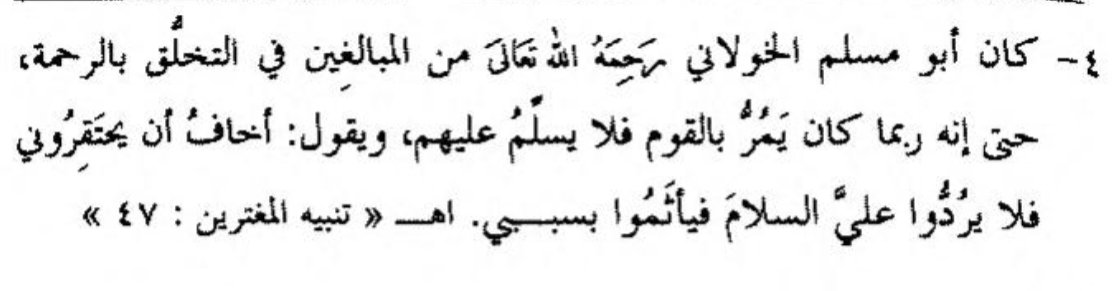 ٤- كان أبو مسلم الخولاني رَحِمَهُ اللهُ تَعَالَىٰ من المبالغِين في التخلُّق بالرحمة،
حتى إنه ربما كان يَمُرُّ بالقوم فلا يسلِّمُ عليهم، ويقول: أخافُ أن يحتَقِرُوني
فلا يرُدُّوا عليَّ السلامَ فيأثَمُوا بسببي. اهـ « تنبيه المغترين : ٤٧ »